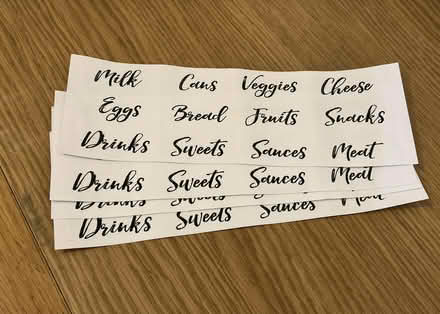 Milk Cans Veggies Cheese
Eggs Bread Fruits Snacks
Drinks Sweets Sauces Meat
Drinks Sweets Sauces Meat
Drinks Sweets Sauces Meat
Drinks Sweets Sauces Meat